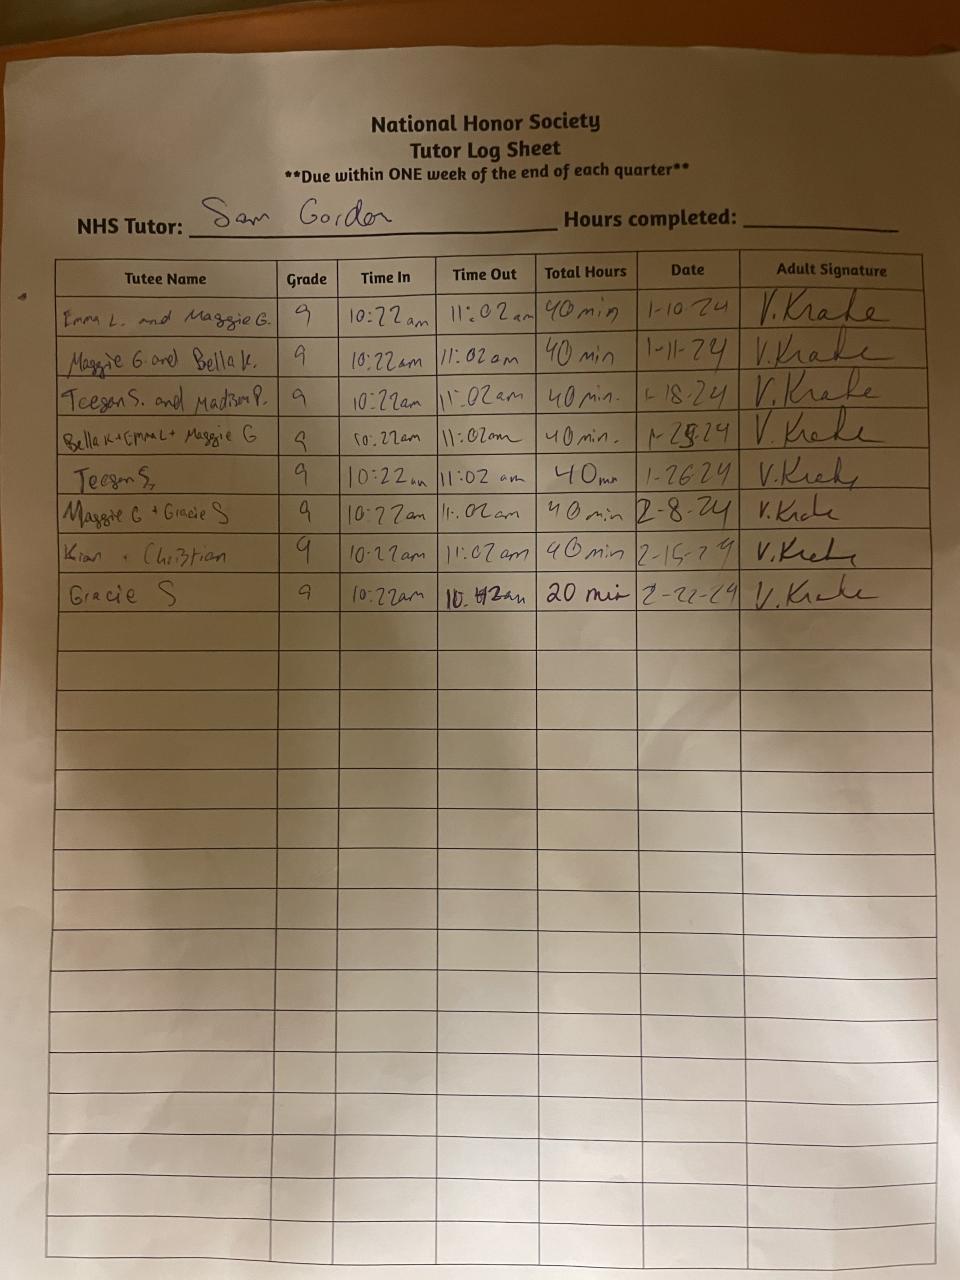 National Honor Society
Tutor Log Sheet
**Due within ONE week of the end of each quarter**
NHS Tutor: Sam Gordon Hours completed:
Tutee Name Grade Time In Time Out Total Hours Date Adult Signature
Emma L. and Maggie G. 9 10:22am 11:02am 40 min 1-10-24 V. Krake
Maggie G. and Bella K. 9 10:22am 11:02am 40 min 1-11-24 V. Krake
Teegan S. and Madison P. 9 10:22am 11:02am 40 min. 1-18-24 V. Krake
Bella K + Emma L + Maggie G 9 10:22am 11:02am 40 min. 1-25-24 V. Krake
Teegan S. 9 10:22am 11:02 am 40 min 1-26-24 V. Krake
Maggie G + Gracie S 9 10:22am 11:02am 40 min 2-8-24 V. Krake
Kian + Christian 9 10:22am 11:02am 40 min 2-15-24 V. Krake
Gracie S 9 10:22am 10:42am 20 min 2-22-24 V. Krake